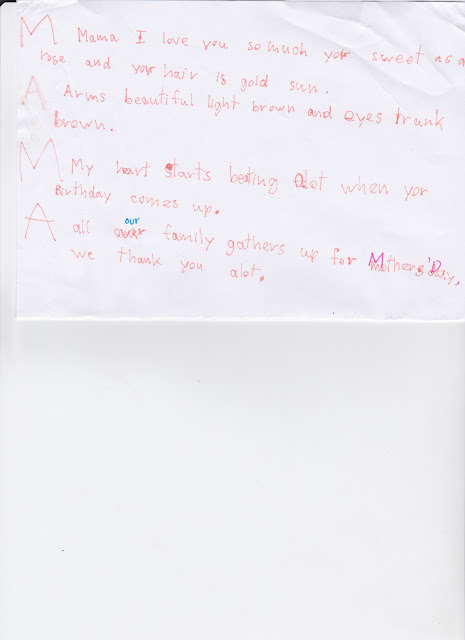 M Mama I love you so much yor sweet as a
rose and yor hair is gold sun.
A Arms beautiful light brown and eyes trunk
brown.
M My hart starts beting alot when yor
Birthday comes up.
A all our family gathers up for Mothers'Day,
we thank you alot.